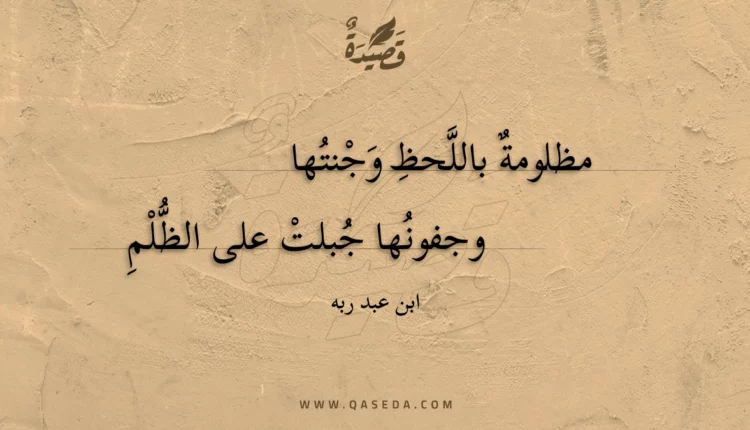 قَصِيدَةٌ
مظلومةٌ باللَّحظِ وَجْنتُها
وجفونُها جُبلتْ على الظُّلْمِ
ابن عبد ربه
WWW.QASEDA.COM